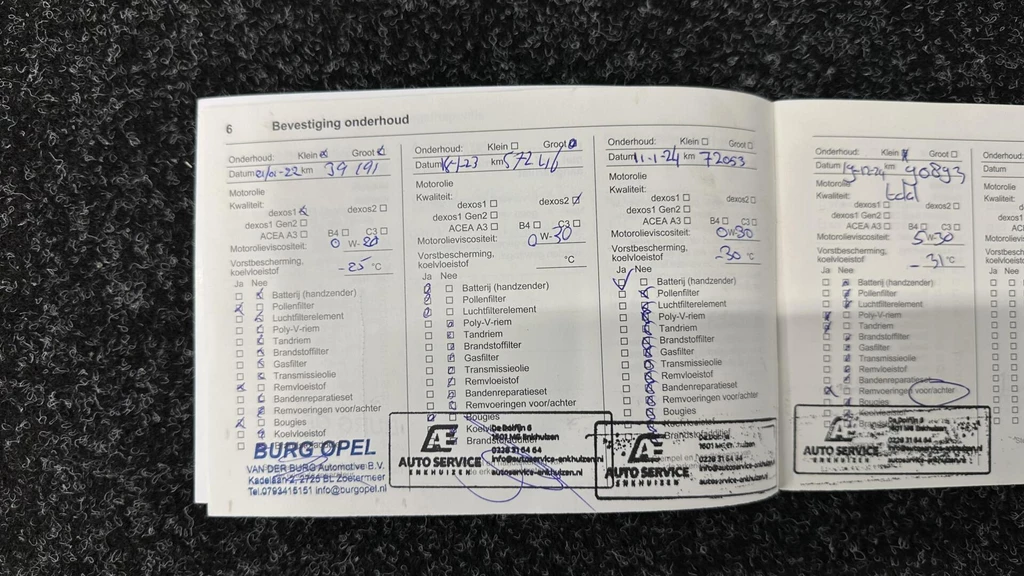 6 Bevestiging onderhoud
Onderhoud: Klein Groot
Datum 21/01-22 km 39 191
Motorolie
Kwaliteit:
dexos1 dexos2
dexos1 Gen2
ACEA A3 B4 C3
Motorolieviscositeit: 0 W-20
Vorstbescherming,
koelvloeistof -25 °C
Ja Nee
Batterij (handzender)
Pollenfilter
Luchtfilterelement
Poly-V-riem
Tandriem
Brandstoffilter
Gasfilter
Transmissieolie
Remvloeistof
Bandenreparatieset
Remvoeringen voor/achter
Bougies
Koelvloeistof
BURG OPEL
VAN DER BURG Automotive B.V.
Kadelaan 2, 2725 BL Zoetermeer
Tel.0793415151 info@burgopel.nl
Onderhoud: Klein Groot
Datum km 57246
Motorolie
Kwaliteit:
dexos1 dexos2
dexos1 Gen2
ACEA A3 B4 C3
Motorolieviscositeit: 0 W-30
Vorstbescherming,
koelvloeistof °C
Ja Nee
Batterij (handzender)
Pollenfilter
Luchtfilterelement
Poly-V-riem
Tandriem
Brandstoffilter
Gasfilter
Transmissieolie
Remvloeistof
Bandenreparatieset
Remvoeringen voor/achter
Bougies
AE
AUTO SERVICE
ENKHUIZEN
De Dolfijn 6
1601 MG Enkhuizen
0228 31 64 64
info@autoservice-enkhuizen.nl
autoservice-enkhuizen.nl
Onderhoud: Klein Groot
Datum 11-1-24 km 72053
Motorolie
Kwaliteit:
dexos1 dexos2
dexos1 Gen2
ACEA A3 B4 C3
Motorolieviscositeit: 0W-30
Vorstbescherming,
koelvloeistof -30 °C
Ja Nee
Batterij (handzender)
Pollenfilter
Luchtfilterelement
Poly-V-riem
Tandriem
Brandstoffilter
Gasfilter
Transmissieolie
Remvloeistof
Bandenreparatieset
Remvoeringen voor/achter
Bougies
Koelvloeistof
AE
AUTO SERVICE
ENKHUIZEN
autoservice-enkhuizen.nl
Onderhoud: Klein Groot
Datum 19-12-24 km 90893
Motorolie
Kwaliteit:
dexos1 dexos2
dexos1 Gen2
ACEA A3 B4 C3
Motorolieviscositeit: 5 W-30
Vorstbescherming,
koelvloeistof -31 °C
Ja Nee
Batterij (handzender)
Pollenfilter
Luchtfilterelement
Poly-V-riem
Tandriem
Brandstoffilter
Gasfilter
Transmissieolie
Remvloeistof
Bandenreparatieset
Remvoeringen voor/achter
Bougies
AE
AUTO SERVICE
ENKHUIZEN
Onderhoud:
Datum
Motorolie
Kwaliteit: